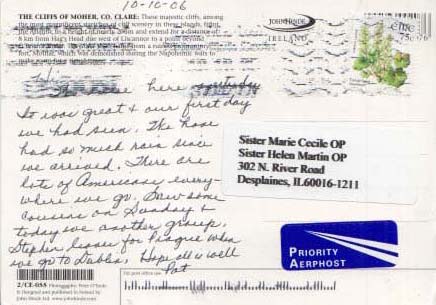 10-10-06
THE CLIFFS OF MOHER, CO. CLARE: These majestic cliffs, among
the most magnificent stretches of cliff scenery in these islands,
the Atlantic to a height of nearly 200m and extend for a distance of
8 km from Hag's Head the west of Liscannor to a point beyond
JOHN HINDE
IRELAND
éire
75c
Hi
here
It was great & our first day
we had seen. The
had so much rain since
we arrived. There are
lots of Americans every-
where we go. Saw some
cousins on Sunday &
today we another group.
Stephen leaves for Prague when
we go to Dublin. Hope all is well
Pat
Sister Marie Cecile OP
Sister Helen Martin OP
302 N. River Road
Desplaines, IL60016-1211
PRIORITY
AERPHOST
2/CE-055
John Hinde Ltd. www.johnhinde.com
For post office use